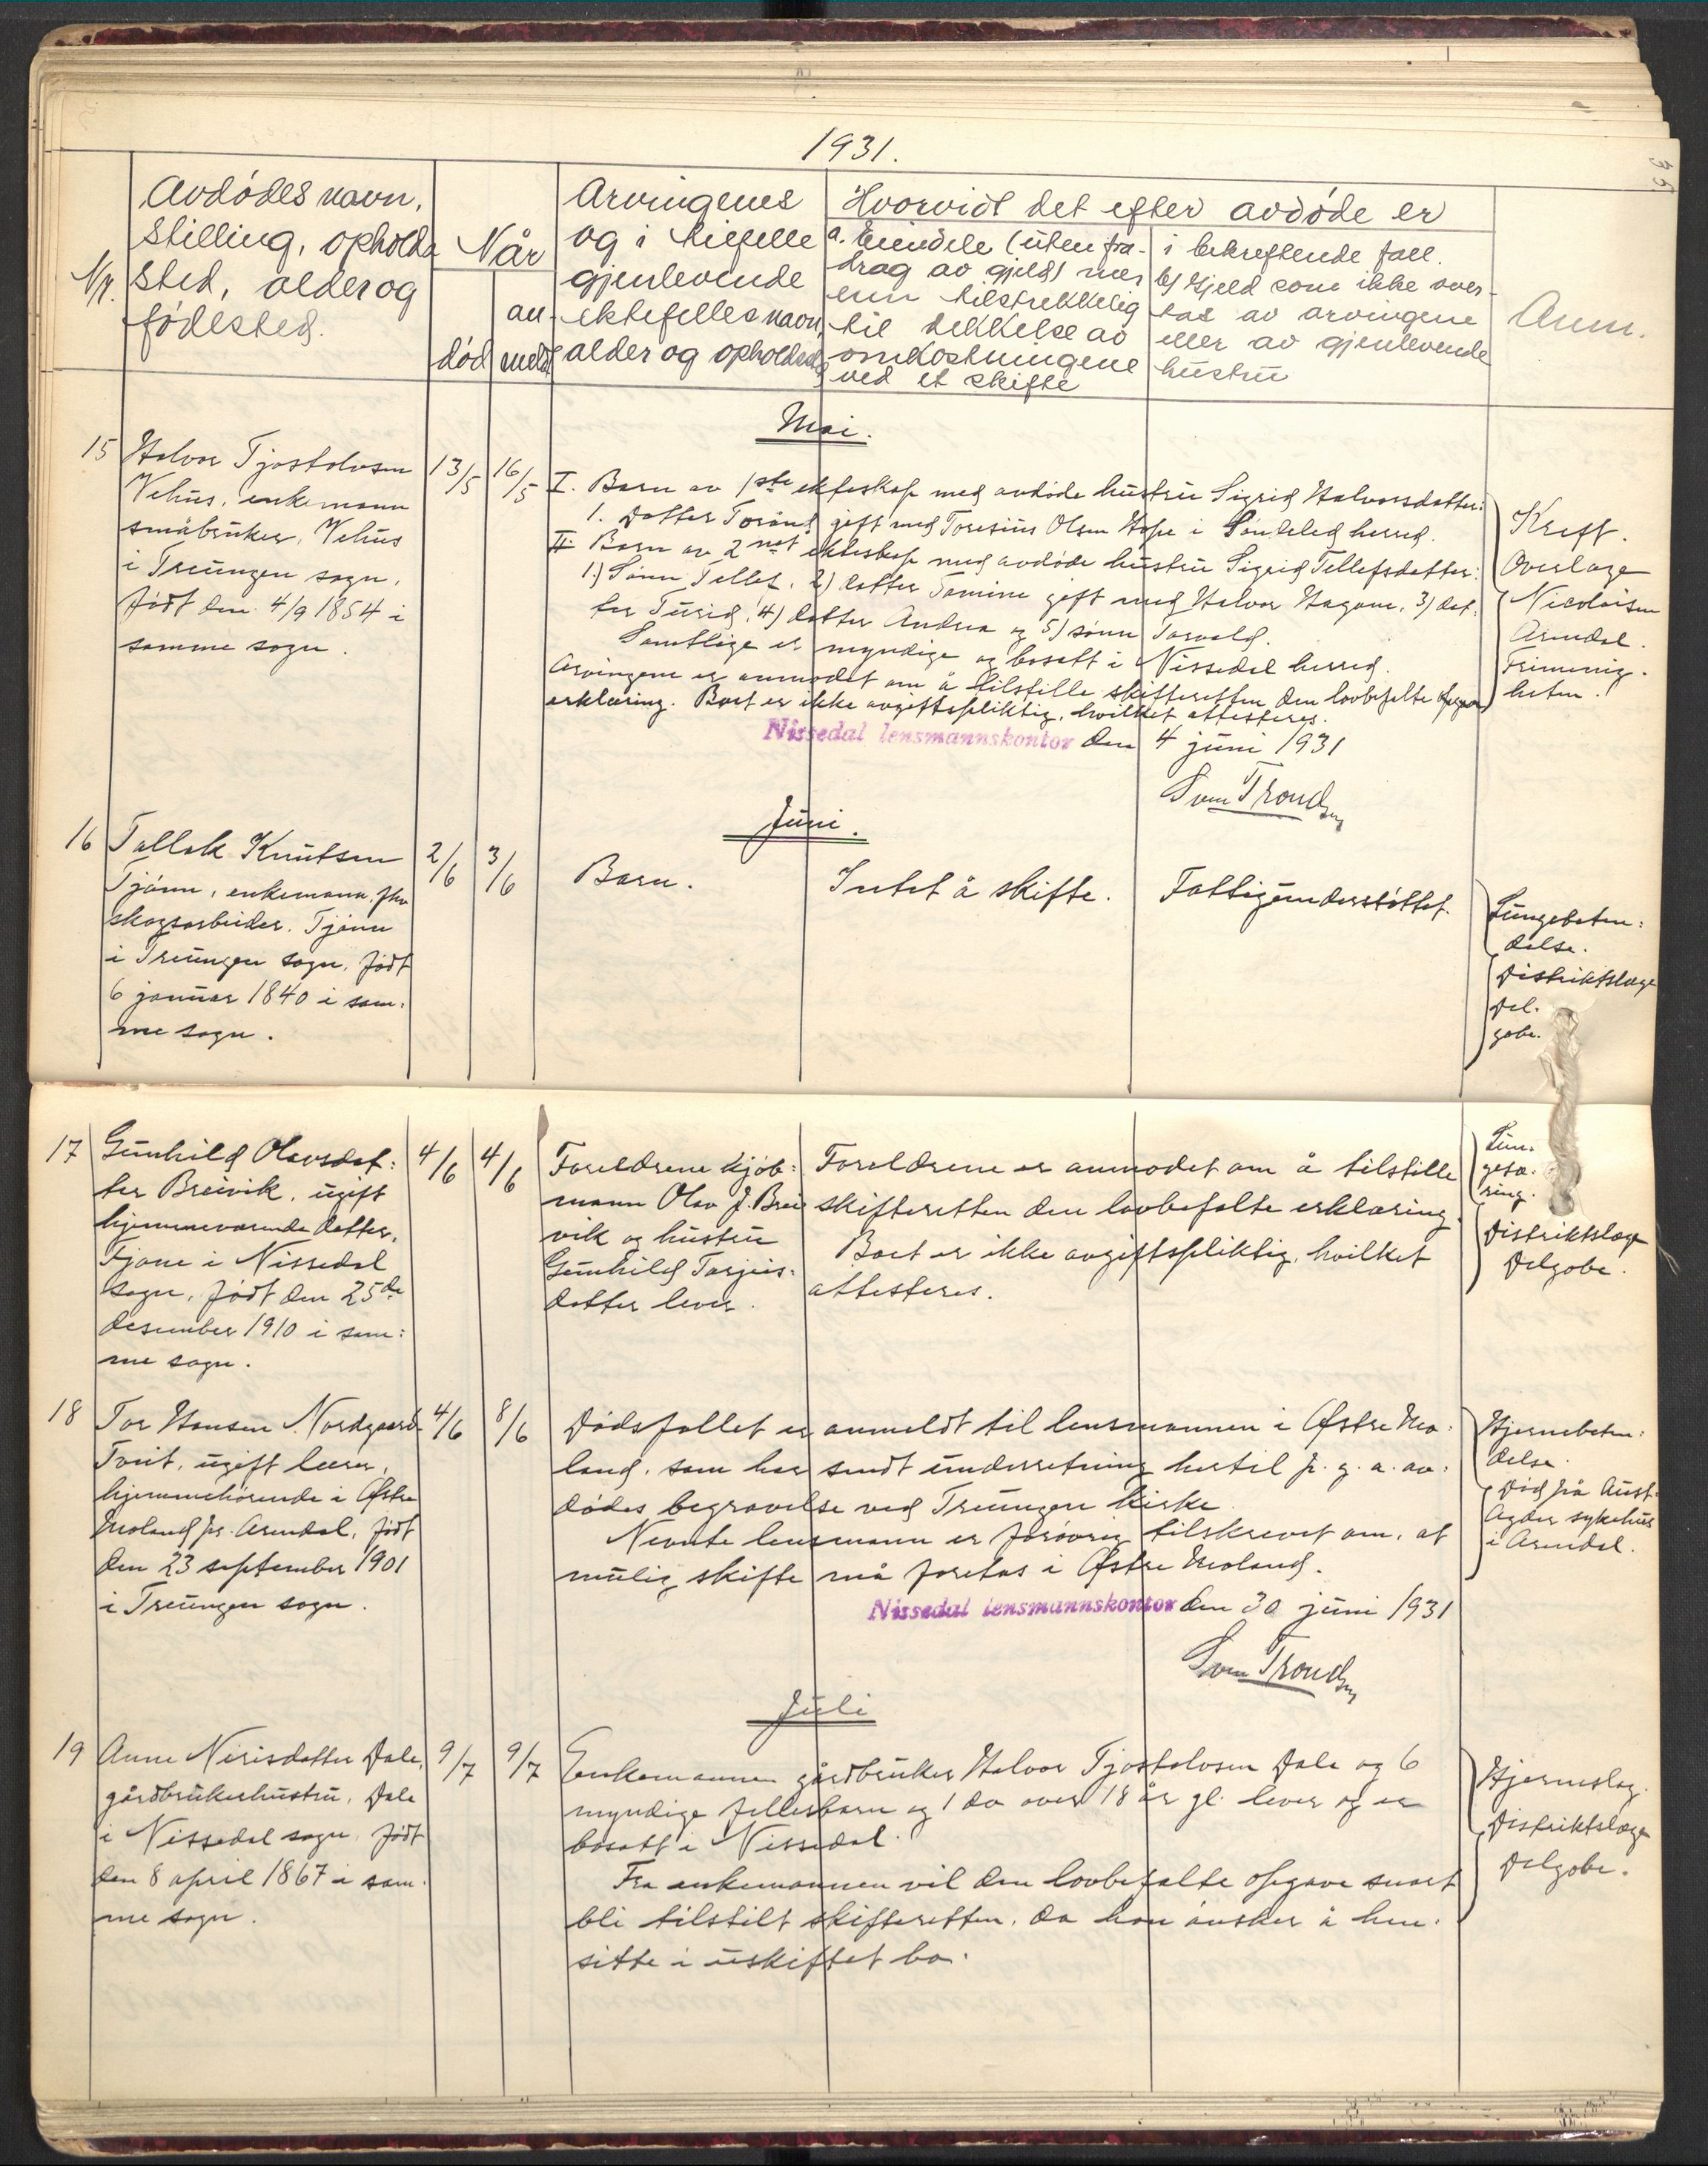 1931.
Nr.
Avdødes navn,
stilling, opholds
sted, alder og
fødested.
Når
død
an-
meldt
Arvingenes
og i tilfelle
gjenlevende
ektefelles navn,
alder og opholdssted
Hvorvidt det efter avdøde er
a. Eiendele (uten fra-
drag av gjeld) mer
enn tilstrekkelig
til dekkelse av
omkostningene
ved et skifte
i bekreftende fall.
b) Gjeld som ikke over-
tas av arvingene
eller av gjenlevende
hustru
Anm.
Mai.
15
Halvor Tjostolvsen
Vehus, enkemann
småbruker, Vehus
i Treungen sogn,
født den 4/9 1854 i
samme sogn.
13/5
16/5
I. Barn av 1ste ekteskap med avdøde hustru Sigrid Halvorsdatter:
1. Datter Torånd gift med Toresius Olsen Hope i Søndeled herred.
II. Barn av 2net ekteskap med avdøde hustru Sigrid Tellefsdatter:
1.) Sønn Tellef, 2) datter Tomine gift med Halvor Hagane, 3) dat:
ter Turid, 4) datter Andrea og 5) sønn Torvald.
Samtlige er myndige og bosatt i Nissedal herred.
Arvingene er anmodet om å tilstille skifteretten den lovbefalte
erklæring. Boet er ikke avgiftspliktig, hvilket attesteres.
Nissedal lensmannskontor den 4 juni 1931
Sven Trondsen
Kreft.
Overlæge
Nicolaisen
Arendal.
Frimenig-
heten.
Juni.
16
Tallak Knutsen
Tjønn, enkemann, fhv
skogsarbeider. Tjønn
i Treungen sogn, født
6 januar 1840 i sam:
me sogn.
2/6
3/6
Barn.
Intet å skifte.
Fattigunderstøttet.
Lungebeten:
delse.
Distriktslæge
Del-
gobe.
17
Gunhild Olavsdat:
ter Breivik, ugift
hjemmeværende datter,
Fjone i Nissedal
sogn, født den 25de
desember 1910 i sam:
me sogn.
4/6
4/6
Foreldrene kjøb:
mann Olav J. Brei
vik og hustru
Gunhild Torjus:
datter lever.
Foreldrene er anmodet om å tilstille
skifteretten den lovbefalte erklæring.
Boet er ikke avgiftspliktig, hvilket
attesteres.
Lun-
getæ-
ring.
Distriktslæge
Delgobe.
18
Tor Hansen Nordgaard
Tveit, ugift lærer,
hjemmehørende i Østre
Moland pr. Arendal, født
den 23 september 1901
i Treungen sogn.
4/6
8/6
Dødsfallet er anmeldt til lensmannen i Østre Mo-
land, som har sendt underretning hertil p. g. a. av-
dødes begravelse ved Treungen kirke.
Nevnte lensmann er forøvrig tilskrevet om, at
mulig skifte må foretas i Østre Moland.
Nissedal lensmannskontor den 30 juni 1931
Sven Trondsen
Hjernebeten:
delse.
Død på Aust-
Agder sykehus
i Arendal.
Juli
19
Anne Nirisdatter Dale,
gårdbrukerhustru, Dale
i Nissedal sogn, født
den 8 april 1867 i sam-
me sogn.
9/7
9/7
Enkemannen gårdbruker Halvor Tjostolvsen Dale og 6
myndige fellesbarn og 1 do over 18 år gl. lever og er
bosatt i Nissedal.
Fra enkemannen vil den lovbefalte opgave snart
bli tilstilt skifteretten, da han ønsker å hen-
sitte i uskiftet bo.
Hjerneslag.
Distriktslæge
Delgobe.